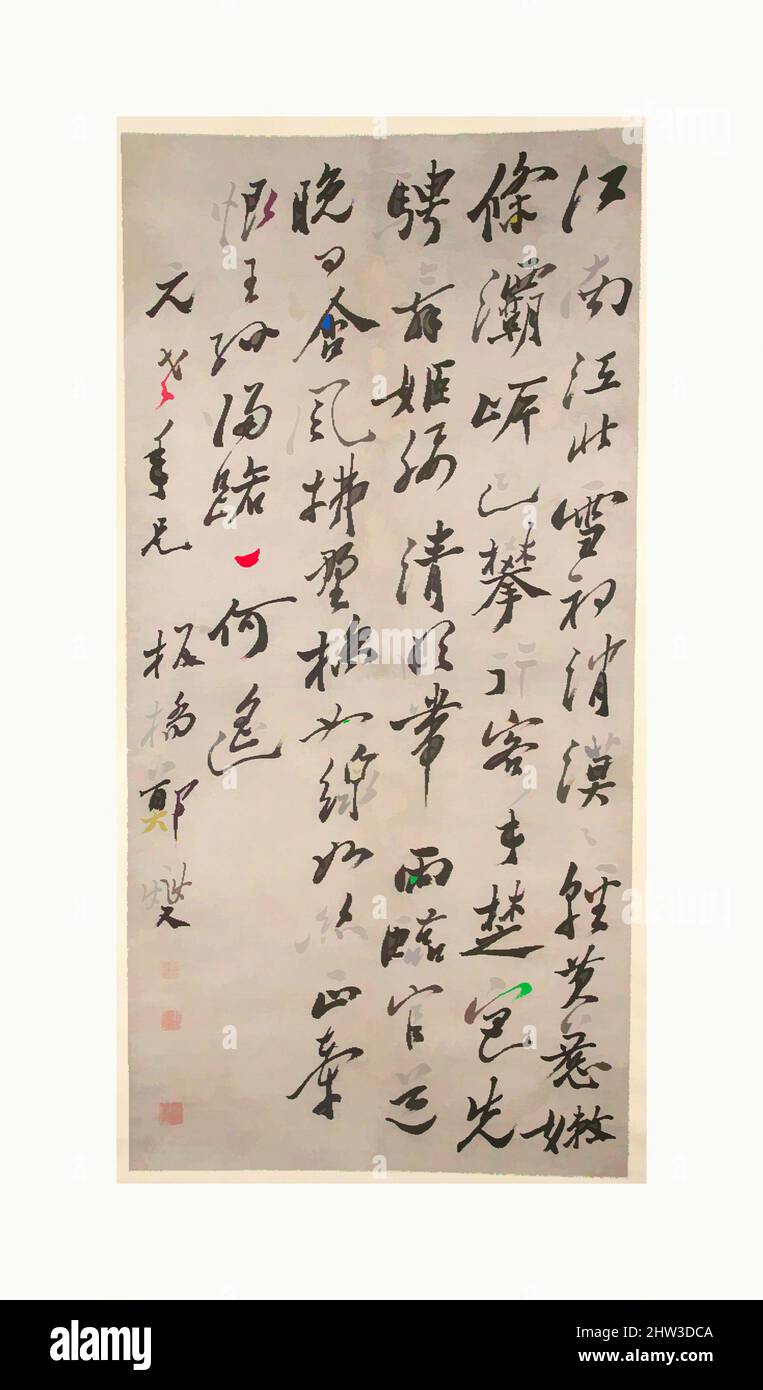 江南江北雪初消漠〻輕黃惹嫩
條灞岸已攀行客手楚宮先
騁舞姬腰清明帶雨臨官道
晚日含風拂野橋如線如絲正牽
恨王孫歸路一何遙
元老年兄 板橋鄭燮
alamy
Image ID: 2HW3DCA
www.alamy.com